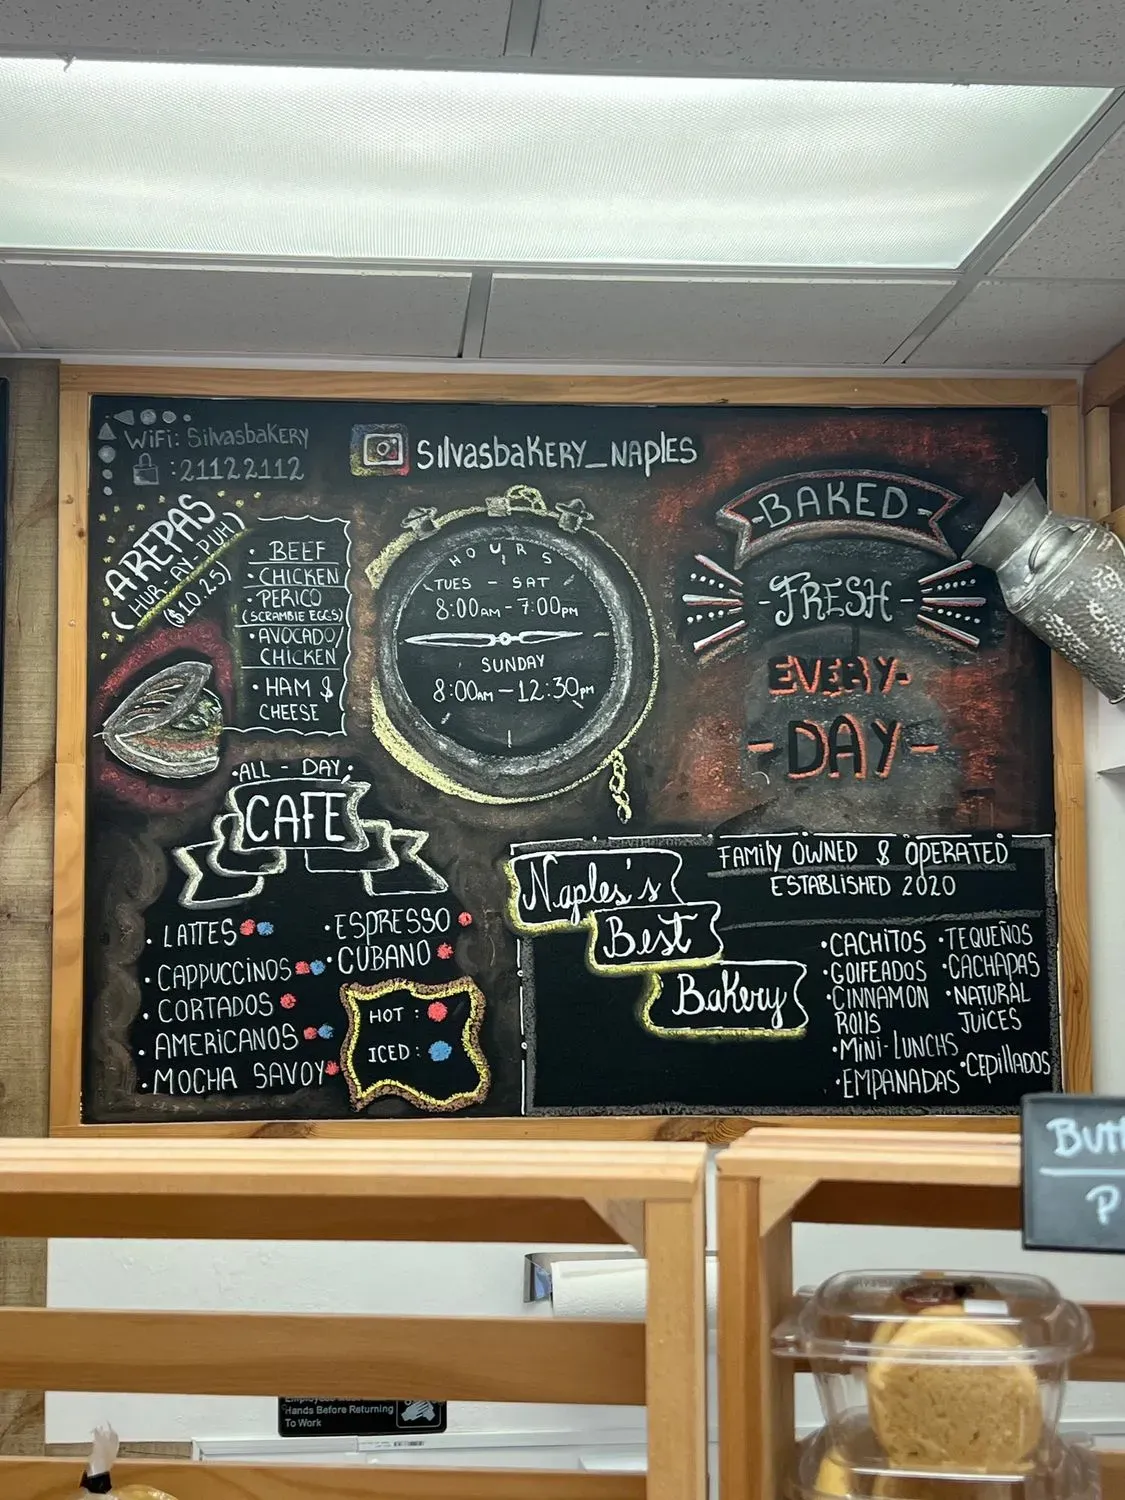 WiFi: Silvasbakery
:21122112
Silvasbakery_naples
AREPAS
(HUR-AY-PUH)
($10.25)
· BEEF
· CHICKEN
· PERICO
(SCRAMBLE EGGS)
· AVOCADO/
CHICKEN
· HAM &
CHEESE
HOURS
TUES - SAT
8:00AM - 7:00PM
SUNDAY
8:00AM - 12:30PM
- BAKED -
- FRESH -
EVERY-
- DAY -
· ALL - DAY ·
CAFE
· LATTES
· CAPPUCCINOS
· CORTADOS
· AMERICANOS
· MOCHA SAVOY
· ESPRESSO
· CUBANO
HOT :
ICED :
Naples's
Best
Bakery
FAMILY OWNED & OPERATED
ESTABLISHED 2020
· CACHITOS
· GOLFEADOS
· CINNAMON
ROLLS
· MINI-LUNCHS
· EMPANADAS
· TEQUEÑOS
· CACHAPAS
· NATURAL
JUICES
· CEPILLADOS
P
Hands Before Returning
To Work